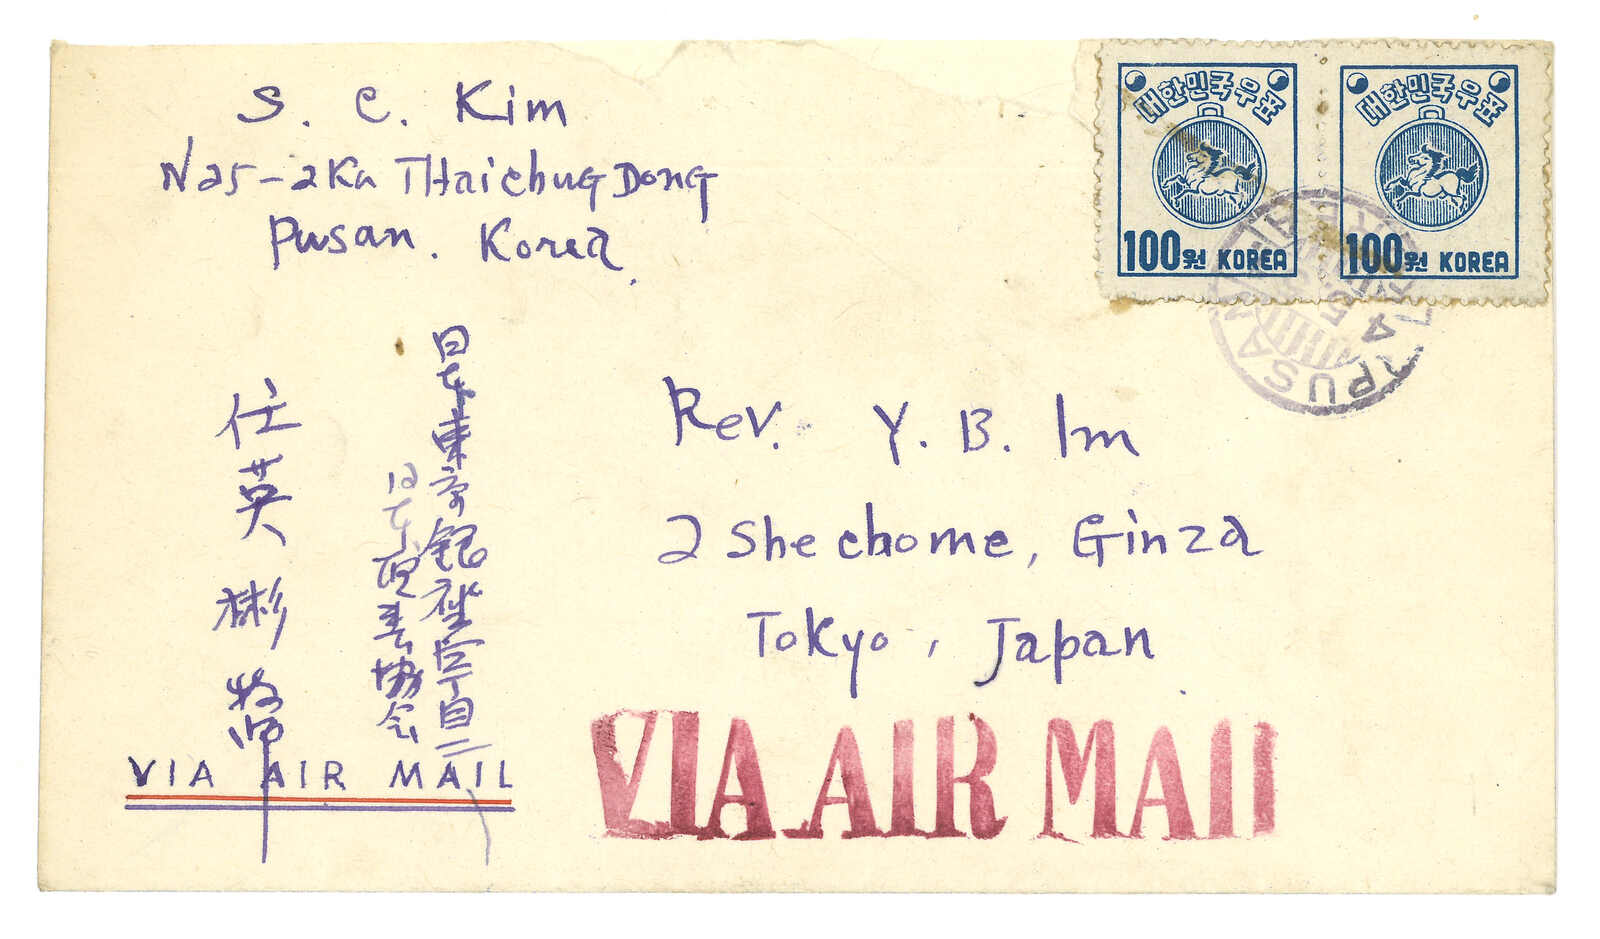 S. C. Kim
N 25-2Ka THaichuG DonG
Pusan. Korea.
대한민국우표
100원 KOREA
대한민국우표
100원 KOREA
PUSAN
Rev. Y. B. Im
2 Shechome, Ginza
Tokyo, Japan
日本東京銀座四丁目二
日本聖書協会
任英彬 牧師
VIA AIR MAIL
VIA AIR MAIL